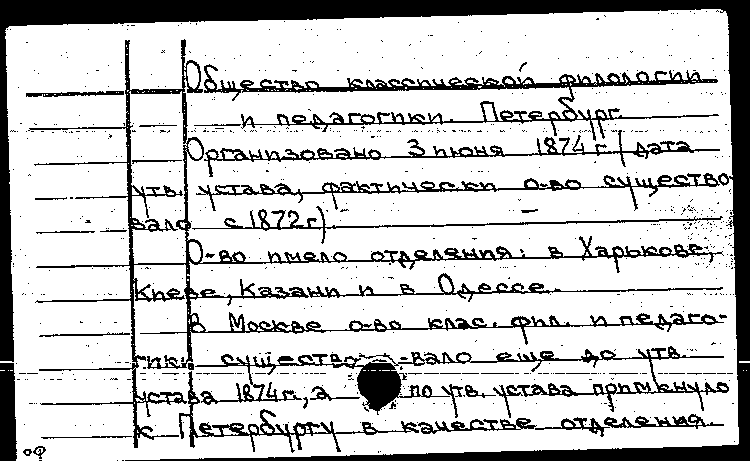 Общество классической филологии
и педагогики. Петербург.
Организовано 3 июня 1874 г. (дата
утв. устава, фактически о-во существо-
вало с 1872 г).
О-во имело отделения: в Харькове,
Киеве, Казани и в Одессе.
В Москве о-во клас. фил. и педаго-
гики существо-вало еще до утв.
устава 1874 г., а по утв. устава примкнуло
к Петербургу в качестве отделения.
оф